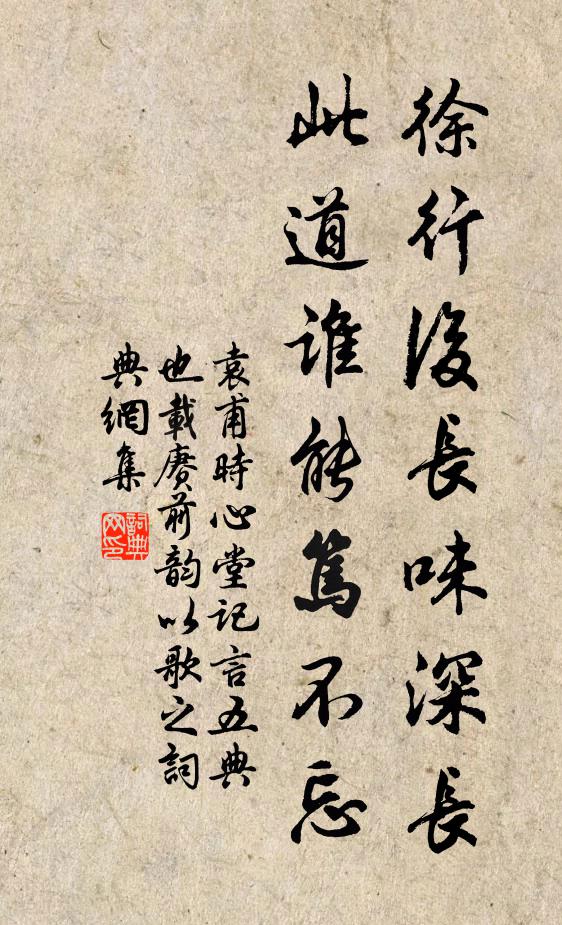 徐行後長味深長
此道誰能篤不忘
袁甫時心堂記言五典
也載賡前韵以歌之詞
典網集
詞典网印